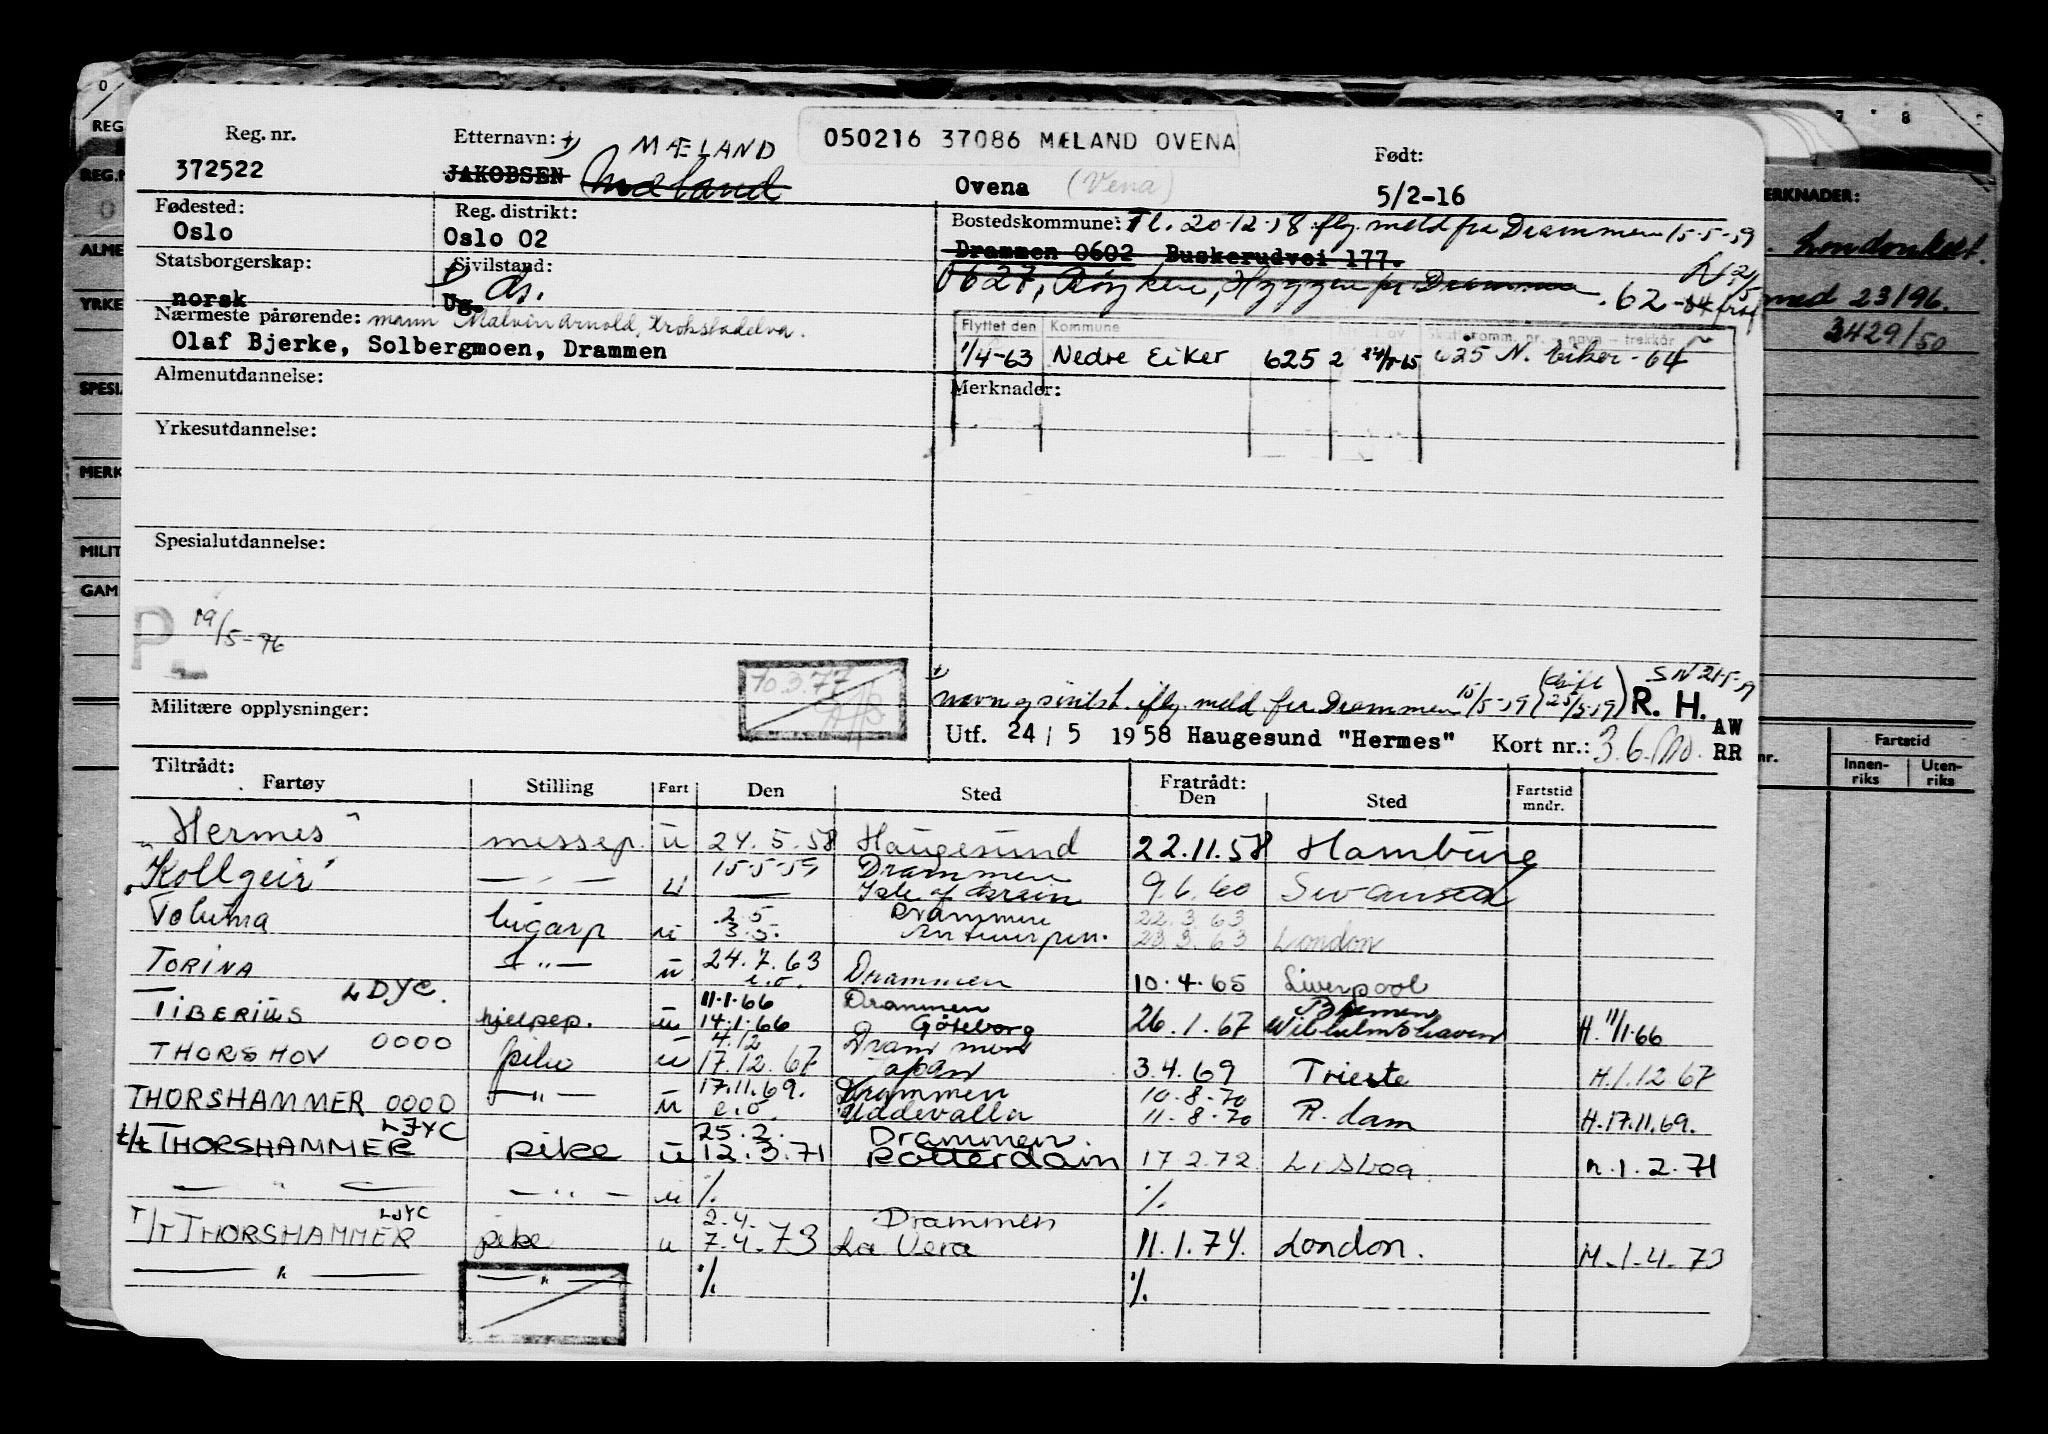 Reg. nr.
372522
Etternavn: +)
MÆLAND
JAKOBSEN Mæland
050216 37086 MÆLAND OVENA
Ovena (Vena)
Født:
5/2-16
Fødested:
Oslo
Reg. distrikt:
Oslo 02
Bostedskommune: Tl. 20-12-58 iflg. meld fra Drammen 15-5-59
Drammen 0602 Buskerudvei 177.
0627, Røyken, Hyggen pr Drammen
.62-64
Statsborgerskap:
norsk
Sivilstand:
Ug.
Nærmeste pårørende: mann Malvin Arnold, Krokstadelva.
Olaf Bjerke, Solbergmoen, Drammen
Flyttet den Kommune
Skattekomm. nr. - navn - trekkår
1/4-63 Nedre Eiker 625 2 625 N. Eiker - 64
Almenutdannelse:
Merknader:
Yrkesutdannelse:
Spesialutdannelse:
P
19/5-76
10.3.77
Militære opplysninger:
+) navn og sivilst. iflg. meld. fra Drammen 15/5-59 (25/5-59) R. H.
AW
Utf. 24 / 5 1958 Haugesund "Hermes" Kort nr.: 3. 6. RR
Tiltrådt:
Fartøy Stilling Fart Den Sted
Fratrådt:
Den Sted
Fartstid
mndr.
"Hermes" messep. u 24.5.58 Haugesund 22.11.58 Hamburg
"Kollgeir" — " — u 15-5-59 — Drammen
Isle of Grain 9.6.60 Swansea
Voluma lugarp u 2.5
3.5. Drammen
Antwerpen. 22.3.63
23.3.63 London
TORINA — " — u 24.7.63
e.o. Drammen 10.4.65 Liverpool
TIBERIUS LDYC. hjelpep. u 11.1.66
14.1.66 Drammen
Göteborg 26.1.67 Bremen
Wilhelmshaven H. 11/1-66
THORSHOV 0000 pike u 4.12
17.12.67 Drammen
Japan 3.4.69 Trieste H.1.12 67
THORSHAMMER 0000 — " — u 17.11.69.
e.o. Drammen
Uddevalla 10-8-70
11-8-70 R. dam H.17.11.69.
t/t THORSHAMMER LJYC pike u 25.2.
12.3.71 Drammen.
Rotterdam 17.2.72 Lisboa H.1.2.71
— " — — " — u % %
T/T THORSHAMMER LJYC pike u 2.4.
7.4.73 Drammen
La Vera 11.1.74. London. H.1.4.73
— " — — " — % %
0
REG.
REG.N
ALME
YRKE
SPESI
MERK
MILIT
GAM
7 8
MERKNADER:
Londonkort.
med 23196.
3429/50
nr.
Fartstid
Innen-
riks
Uten-
riks